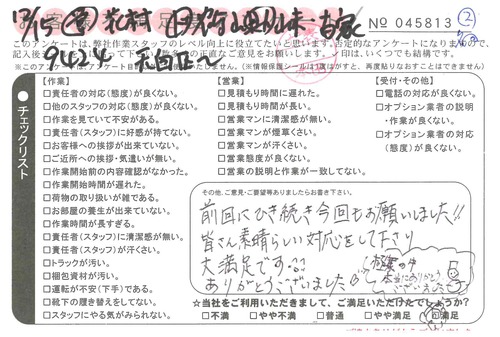 No 045813
②
このアンケートは、弊社作業スタッフのレベル向上に役立てたいと思います。否定的なアンケートになりますので、
※このアンケート
【作業】
□責任者の対応(態度)が良くない。
□他のスタッフの対応(態度)が良くない。
□作業を見ていて不安がある。
□責任者(スタッフ)に好感が持てない。
□お客様への挨拶が出来ていない。
□ご近所への挨拶・気遣いが無い。
□作業開始前の内容確認がなかった。
□作業開始時間が遅れた。
□荷物の取り扱いが雑である。
□お部屋の養生が出来ていない。
□作業時間が長すぎる。
□責任者(スタッフ)に清潔感が無い。
□責任者(スタッフ)が汗くさい。
□トラックが汚い。
□梱包資材が汚い。
□運転が不安(下手)である。
□靴下の履き替えをしてない。
□スタッフにやる気がみられない。
【営業】
□見積もり時間に遅れた。
□見積もり時間が長い。
□営業マンに清潔感が無い。
□営業マンが煙草くさい。
□営業マンが汗くさい。
□営業態度が良くない。
□営業の説明と作業が一致してない。
【受付・その他】
□電話の対応が良くない。
□オプション業者の説明
・作業が良くない。
□オプション業者の対応
(態度)が良くない。
チェックリスト
その他、ご意見・ご要望等ありましたらお書き下さい。
前回にひき続き今回もお願いしました!!
皆さん素晴らしい対応をして下さり
大満足です。
ありがとうございました
本当にありがとう
ございました
☆当社をご利用いただきまして、ご満足いただけたでしょうか?
□不満 □やや不満 □普通 □やや満足 □満足